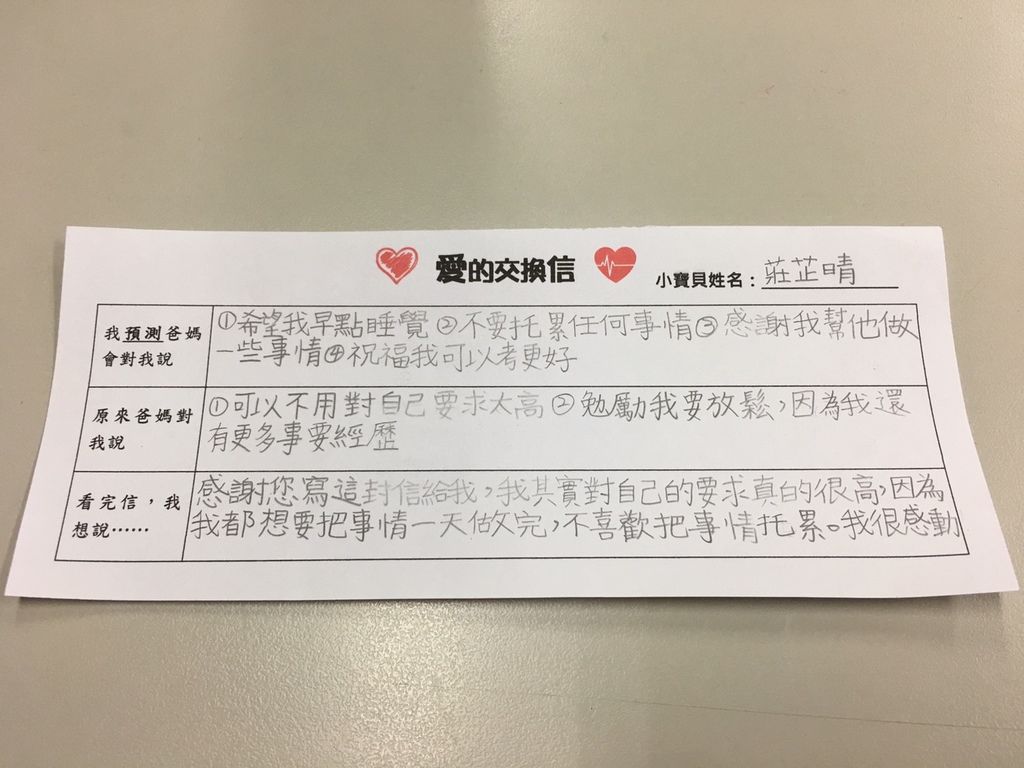 愛的交換信
小寶貝姓名：莊芷晴
我預測爸媽
會對我說
①希望我早點睡覺 ②不要托累任何事情③感謝我幫他做
一些事情④祝福我可以考更好
原來爸媽對
我說
①可以不用對自己要求太高 ②勉勵我要放鬆，因為我還
有更多事要經歷
看完信，我
想說……
感謝您寫這封信給我，我其實對自己的要求真的很高，因為
我都想要把事情一天做完，不喜歡把事情托累。我很感動